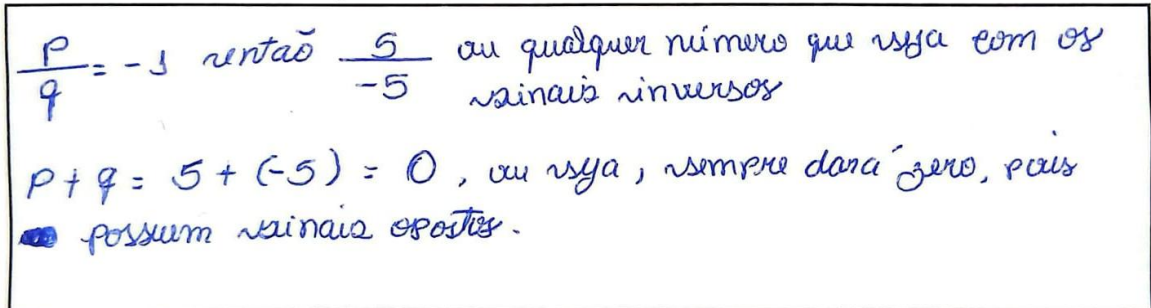 p/q = -1 então 5/-5 ou qualquer número que seja com os
sinais inversos
p + q = 5 + (-5) = 0, ou seja, sempre dará zero, pois
possuem sinais opostos.